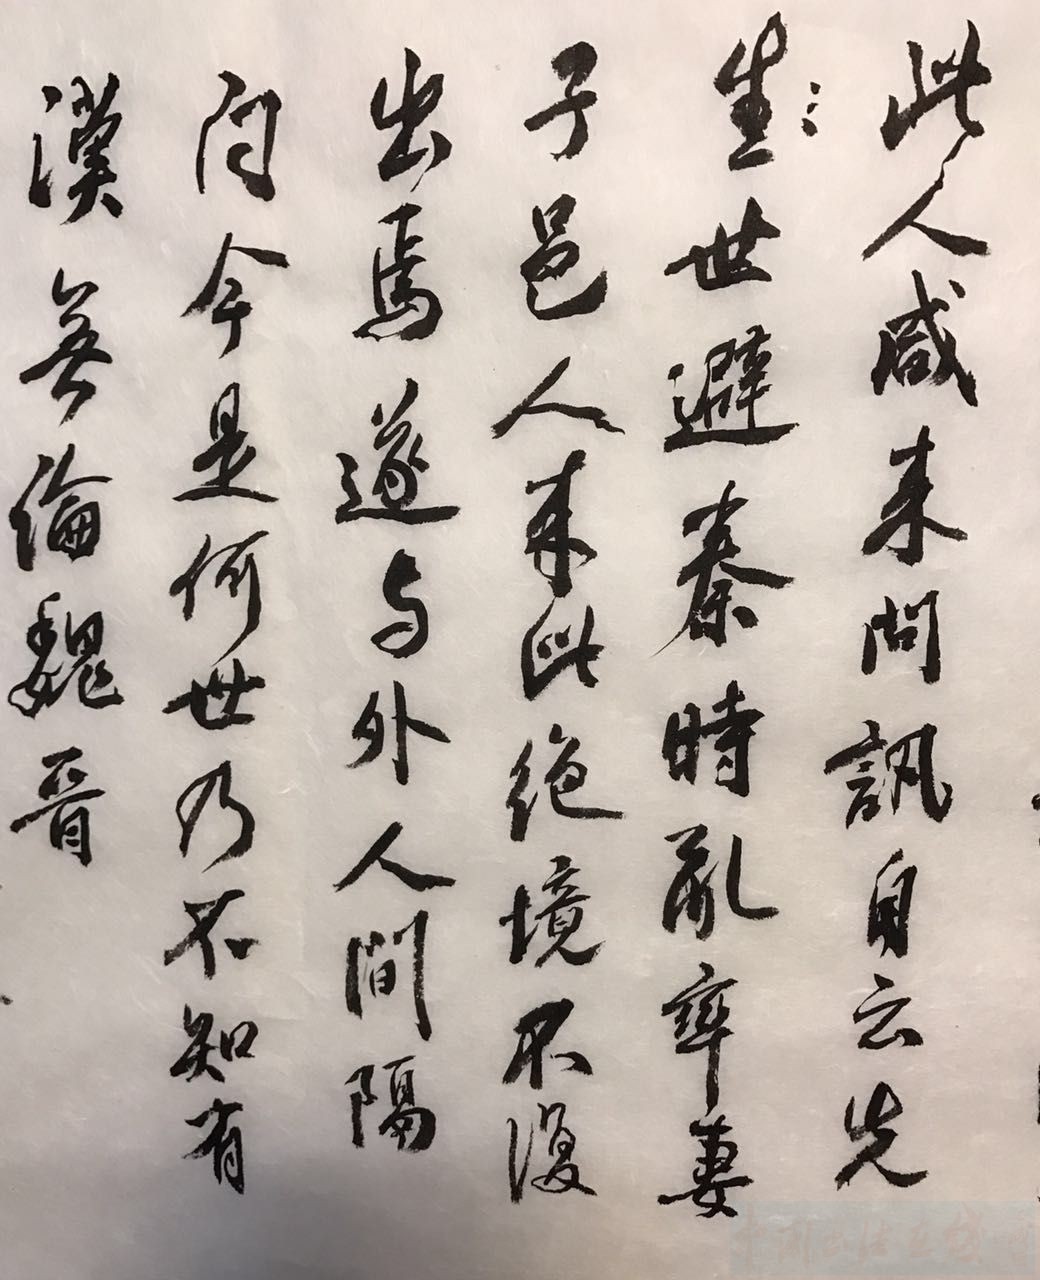 此人咸来問訊自云先
生世避秦時亂率妻
子邑人来此绝境不復
出焉遂与外人間隔
问今是何世乃不知有
漢無論魏晋